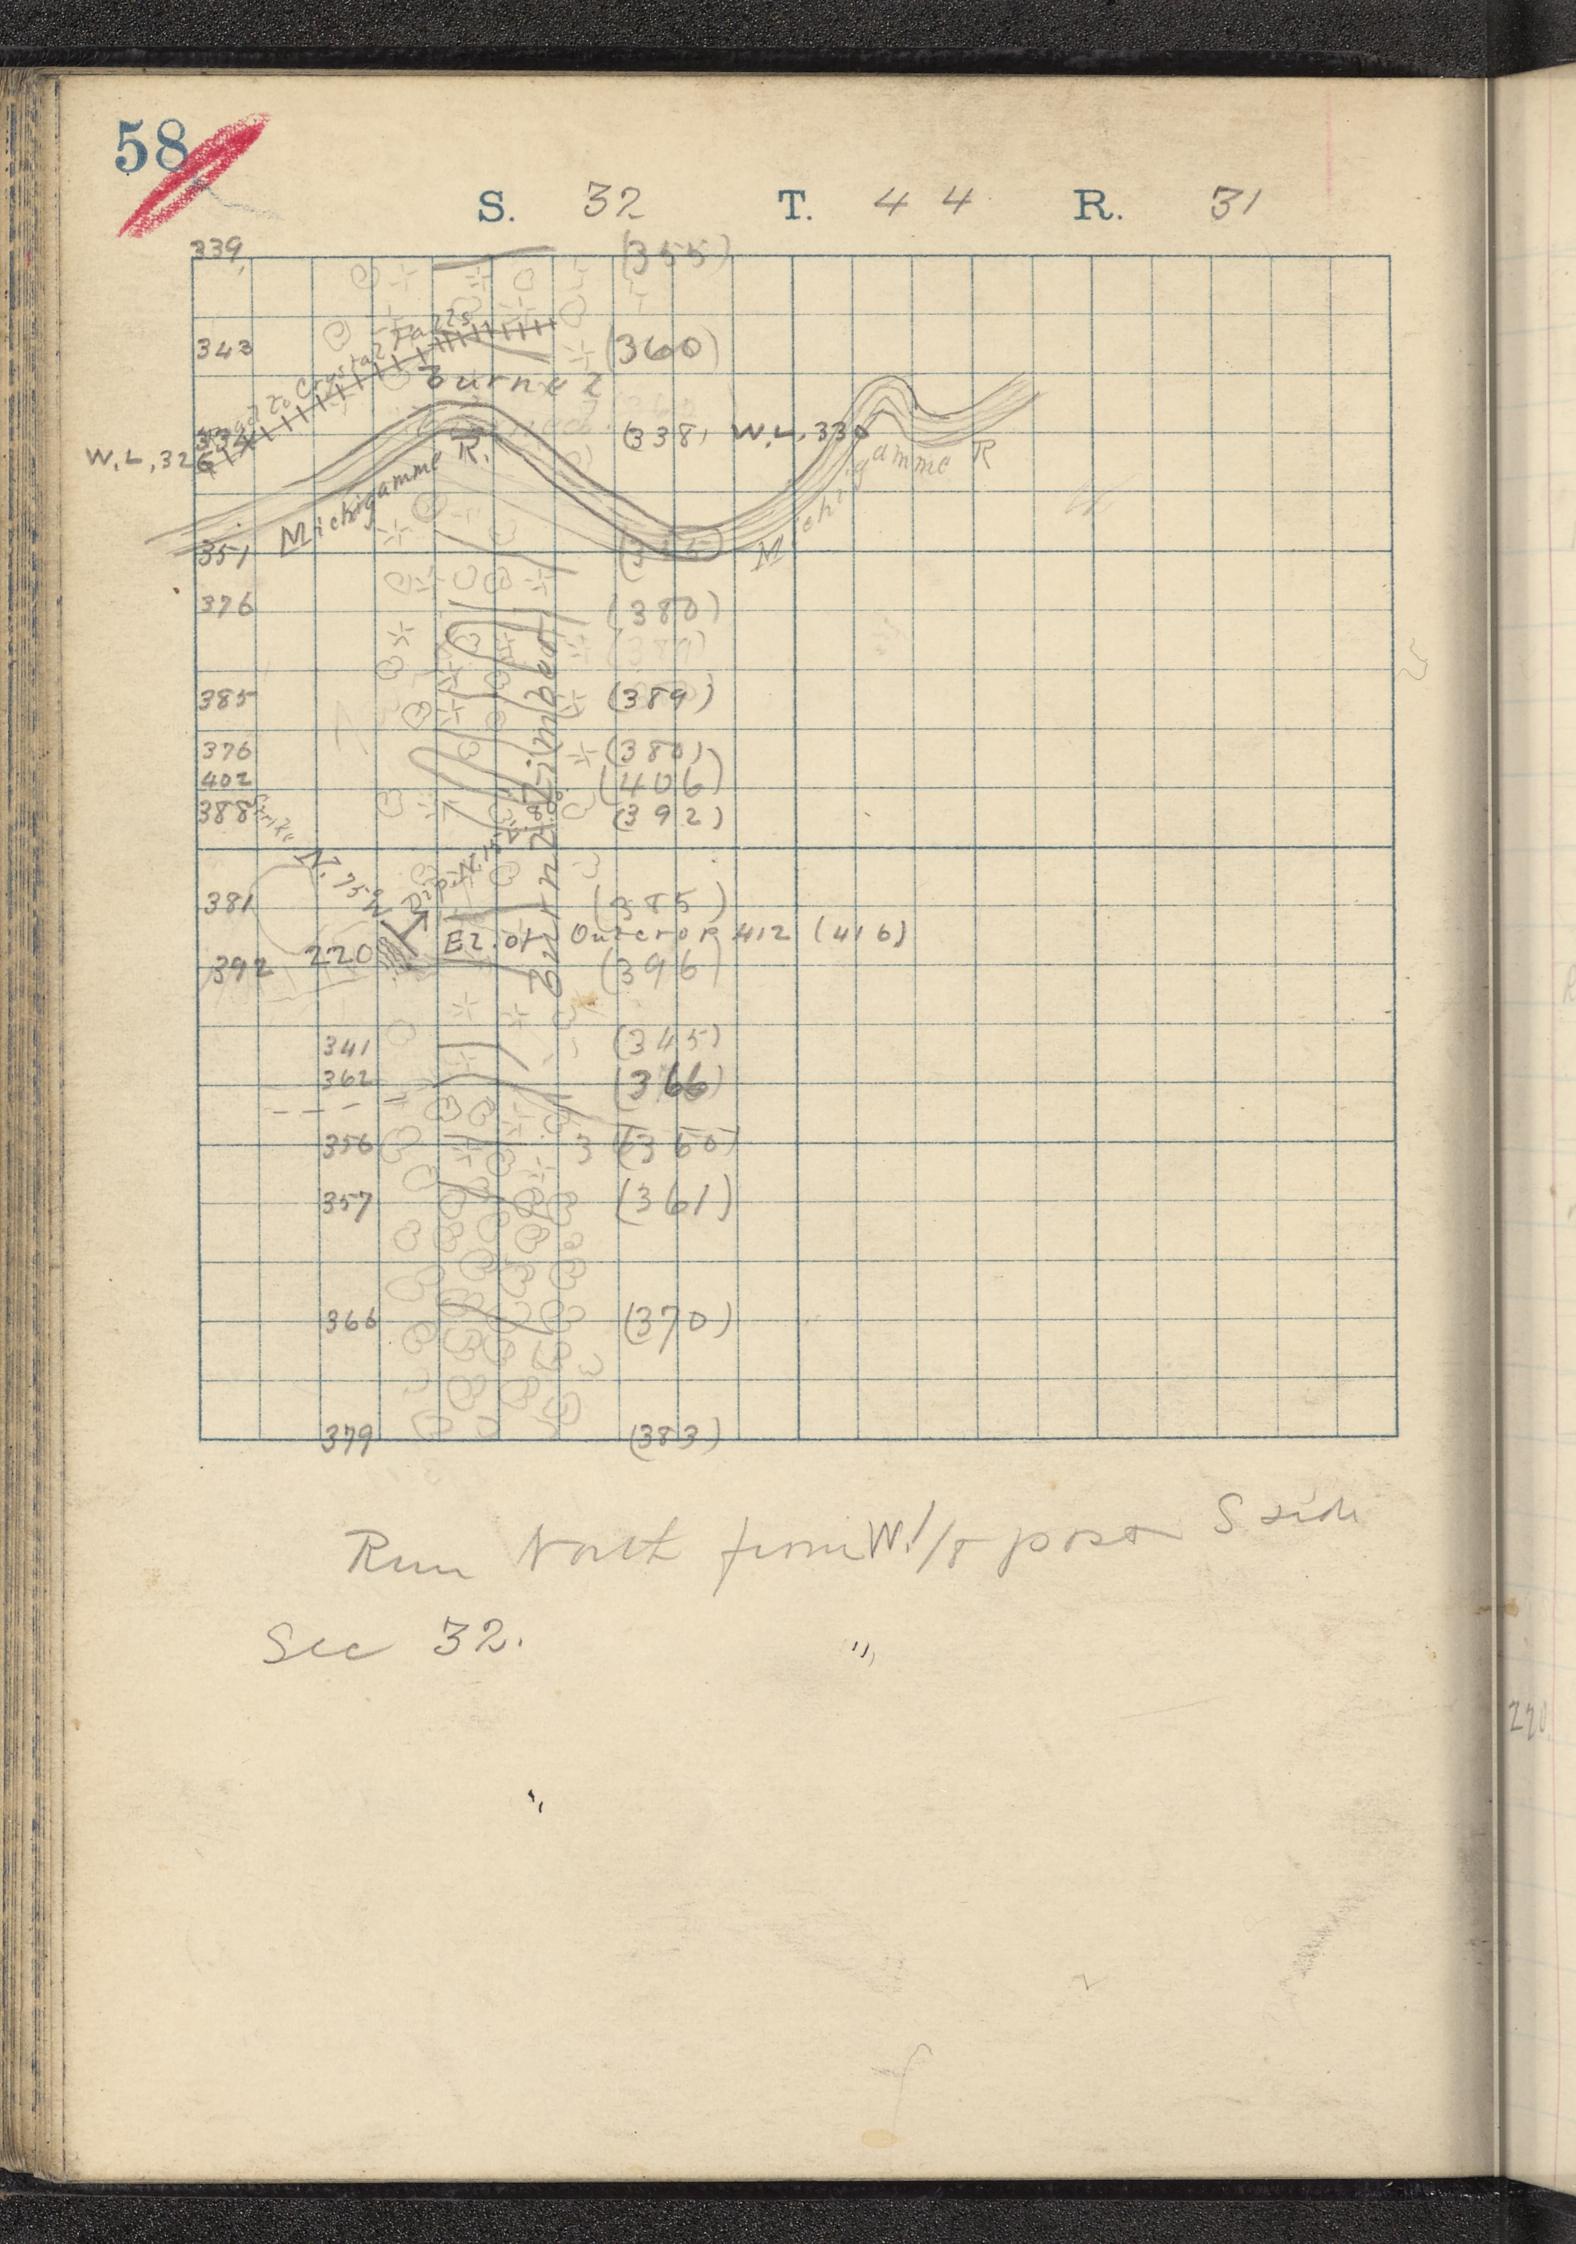 58
S. 32 T. 44 R. 31
339 (355)
Road to Crystal Falls
343 (360)
Burned
334 (338) W.L. 330
W.L. 326
Michigamme R.
Michigamme R
351 (345)
376 (380)
385 (389)
376 (380)
402 (406)
388 (392)
Burned Timber
Strike N. 75 W
Dip N. 15 E. 80°
381 (385)
El. of Outcrop 412 (416)
392 220 (396)
341 (345)
362 (366)
356 (360)
357 (361)
366 (370)
379 (383)
Run North from W. 1/8 post S side
Sec 32.
220